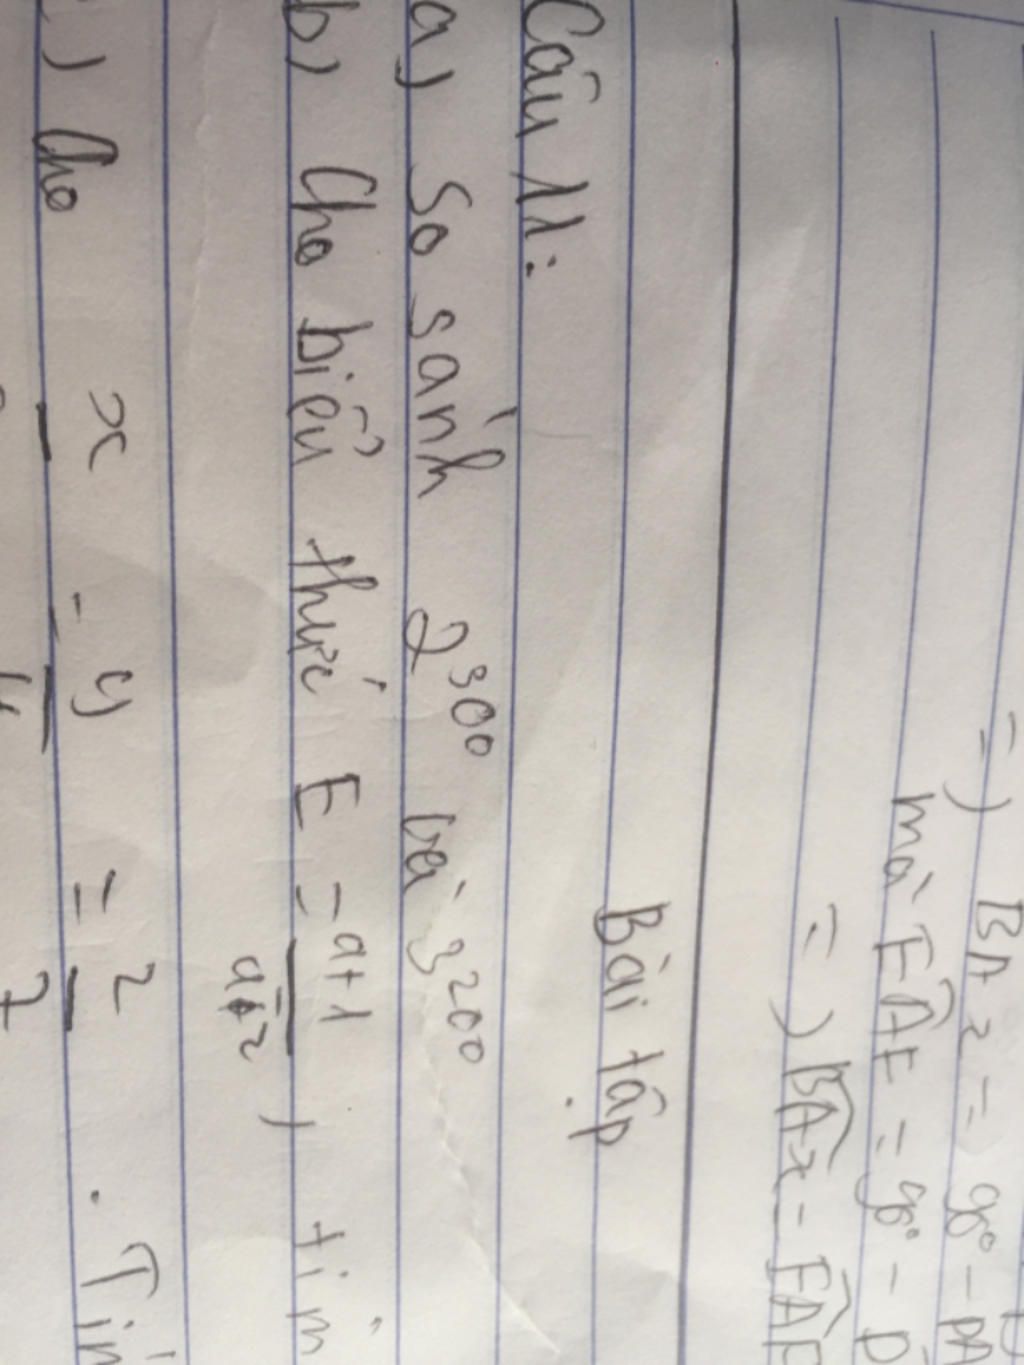 =) BA2 = 90° -
mà FAE = 90° -
=) BAx =
Bài tập
Câu 11:
a) So sánh 2^300 và 3^200
b) Cho biểu thức E = a+1/a-2, tìm
) Cho x/ - y/ = 2/7.